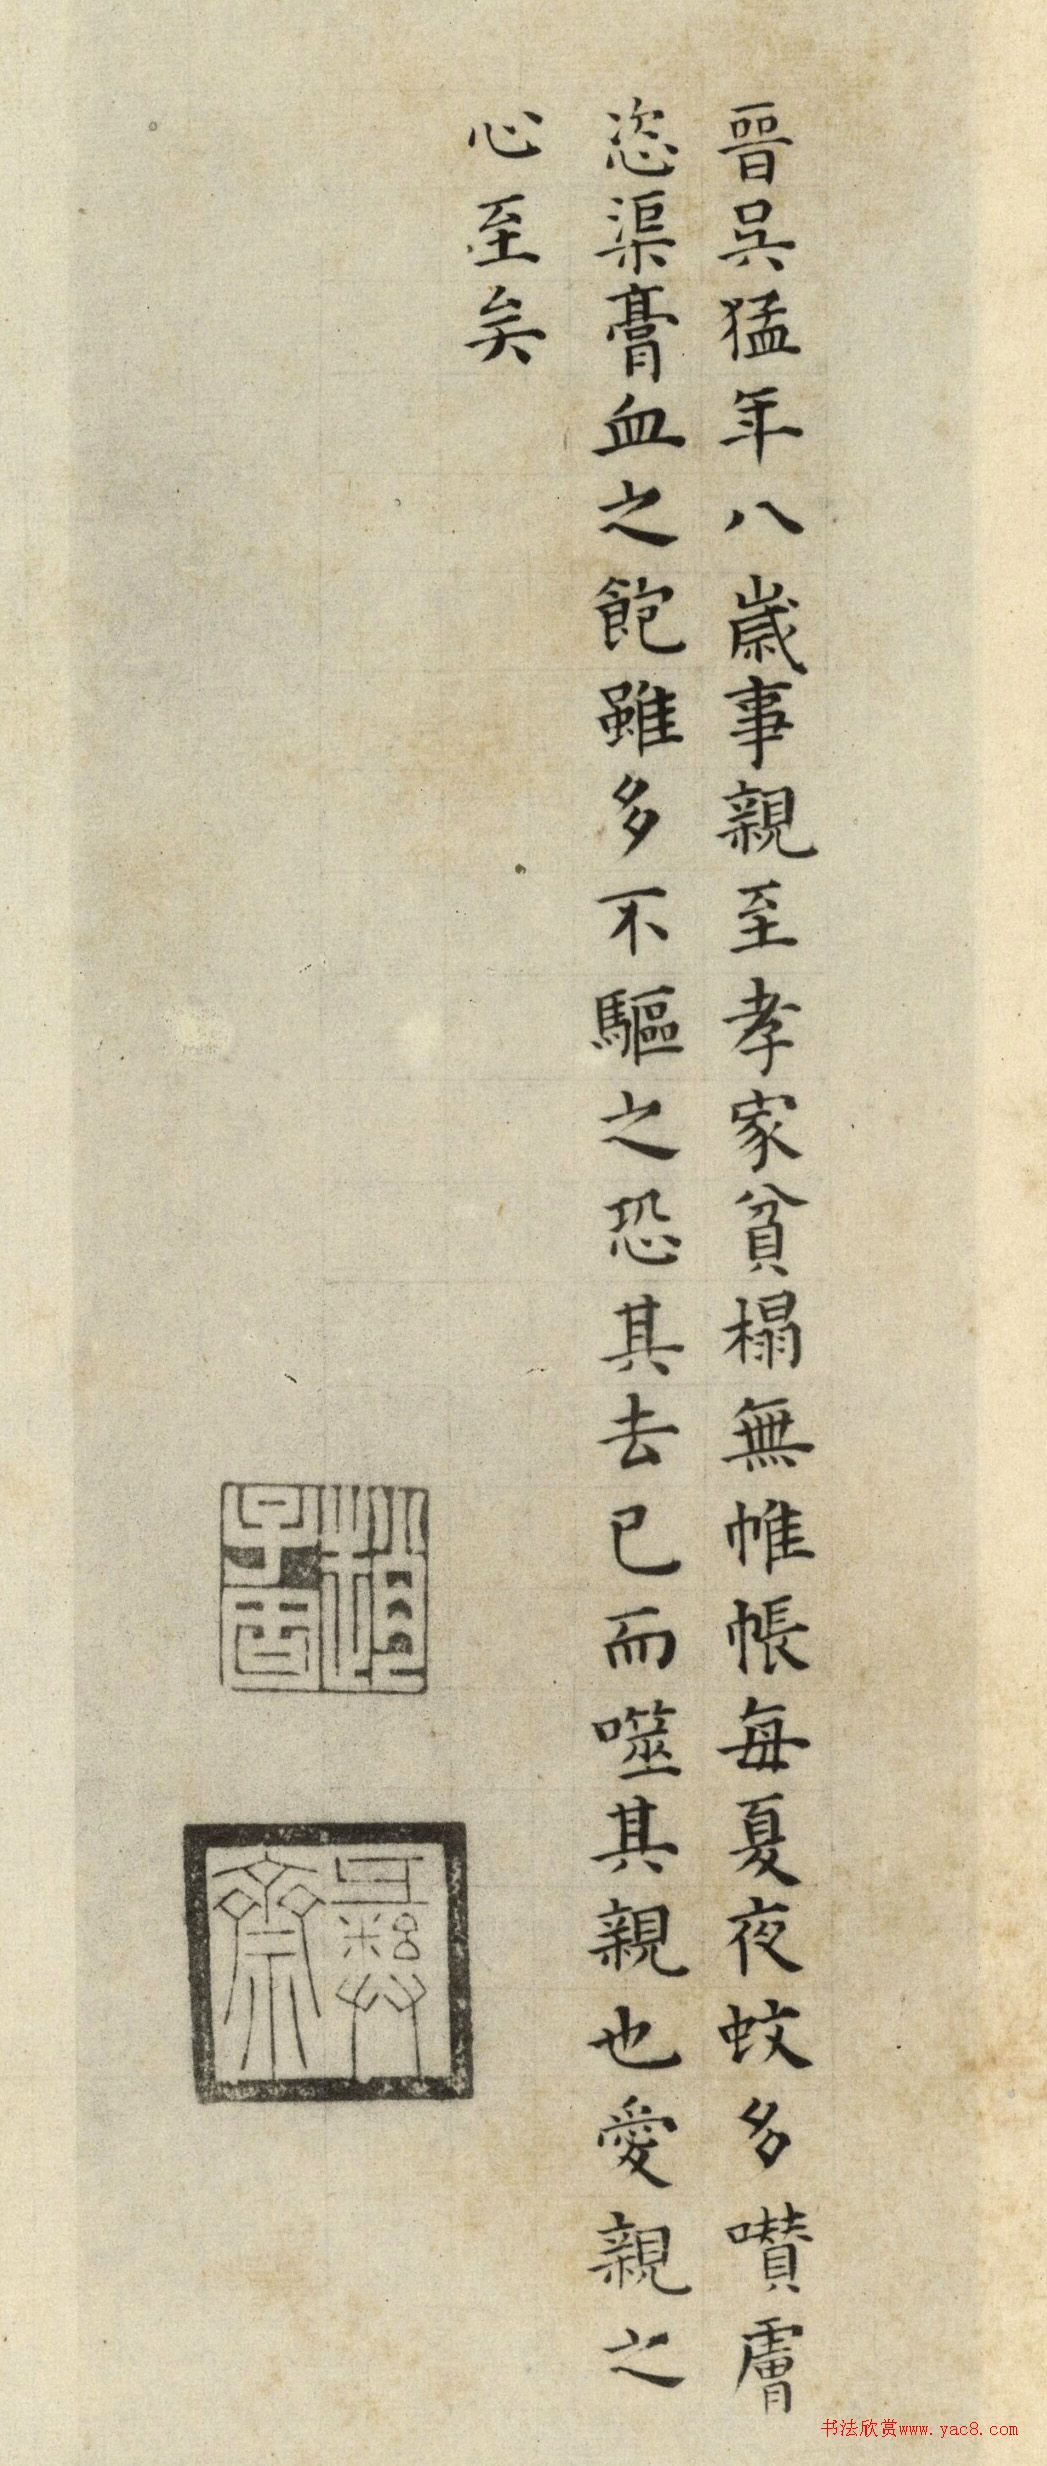 晉吳猛年八歲事親至孝家貧榻無帷帳每夏夜蚊多噆膚
恣渠膏血之飽雖多不驅之恐其去已而噬其親也愛親之
心至矣
彝齋
书法欣赏www.yac8.com